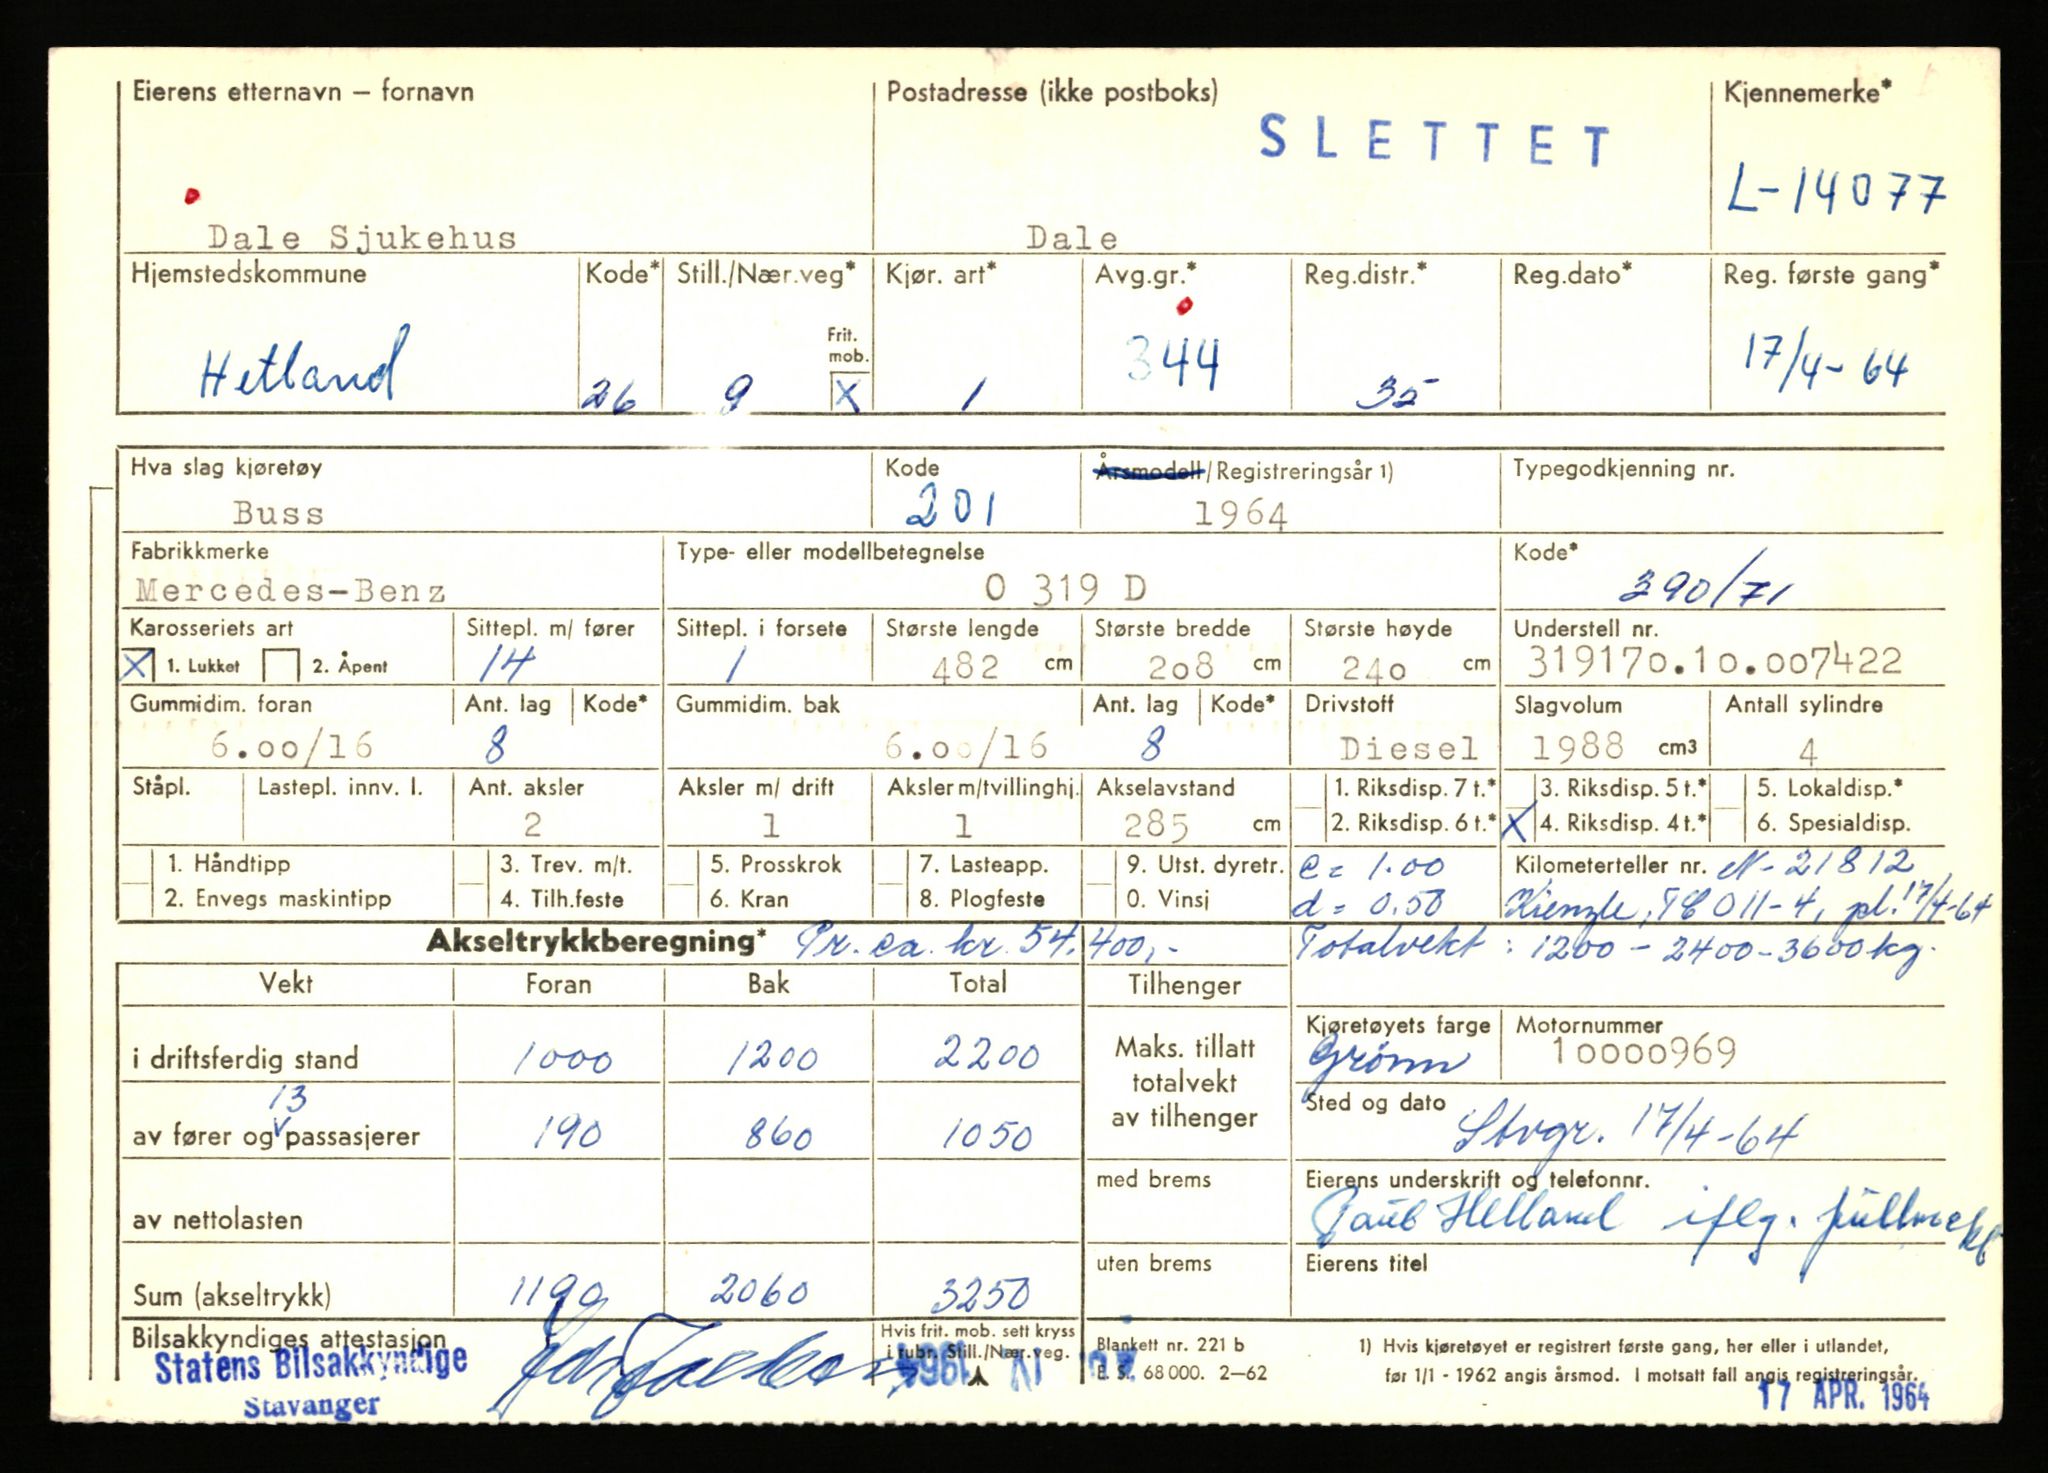 Eierens etternavn – fornavn
Postadresse (ikke postboks)
Kjennemerke*
SLETTET
L-14077
Dale Sjukehus
Dale
Hjemstedskommune
Kode*
Still./Nær.veg*
Kjør. art*
Avg.gr.*
Reg.distr.*
Reg.dato*
Reg. første gang*
Frit. mob.
Hetland
26
9
X
1
344
35
17/4-64
Hva slag kjøretøy
Kode
Årsmodell/Registreringsår 1)
Typegodkjenning nr.
Buss
201
1964
Fabrikkmerke
Type- eller modellbetegnelse
Kode*
Mercedes-Benz
O 319 D
390/71
Karosseriets art
Sittepl. m/ fører
Sittepl. i forsete
Største lengde
Største bredde
Største høyde
Understell nr.
X 1. Lukket 2. Åpent
14
1
482 cm
208 cm
240 cm
319170.10.007422
Gummidim. foran
Ant. lag
Kode*
Gummidim. bak
Ant. lag
Kode*
Drivstoff
Slagvolum
Antall sylindre
6.00/16
8
6.00/16
8
Diesel
1988 cm3
4
Ståpl.
Lastepl. innv. l.
Ant. aksler
Aksler m/ drift
Aksler m/tvillinghj.
Akselavstand
1. Riksdisp. 7 t.*
3. Riksdisp. 5 t.*
5. Lokaldisp.*
2
1
1
285 cm
2. Riksdisp. 6 t.*
X 4. Riksdisp. 4 t.*
6. Spesialdisp.
1. Håndtipp
3. Trev. m/t.
5. Prosskrok
7. Lasteapp.
9. Utst. dyretr.
c = 1.00
Kilometerteller nr. N-21812
2. Envegs maskintipp
4. Tilh.feste
6. Kran
8. Plogfeste
0. Vinsj
d = 0.50
Kienzle, TCO 11-4, pl. 17/4-64
Akseltrykkberegning* Pr. ca. kr. 54.400,-
Totalvekt: 1200 - 2400 - 3600 kg.
Vekt
Foran
Bak
Total
Tilhenger
i driftsferdig stand
1000
1200
2200
Maks. tillatt
totalvekt
av tilhenger
Kjøretøyets farge
Motornummer
Grønn
10000969
13
av fører og v passasjerer
190
860
1050
Sted og dato
Stvgr. 17/4-64
av nettolasten
med brems
Eierens underskrift og telefonnr.
Helland iflg. fullmakt
Sum (akseltrykk)
1190
2060
3250
uten brems
Eierens titel
Bilsakkyndiges attestasjon
Statens Bilsakkyndige
Stavanger
Hvis frit. mob. sett kryss
i rubr. Still./Nær.veg.
Blankett nr. 221 b
E. S. 68 000. 2–62
1) Hvis kjøretøyet er registrert første gang, her eller i utlandet,
før 1/1 - 1962 angis årsmod. I motsatt fall angis registreringsår.
17 APR. 1964